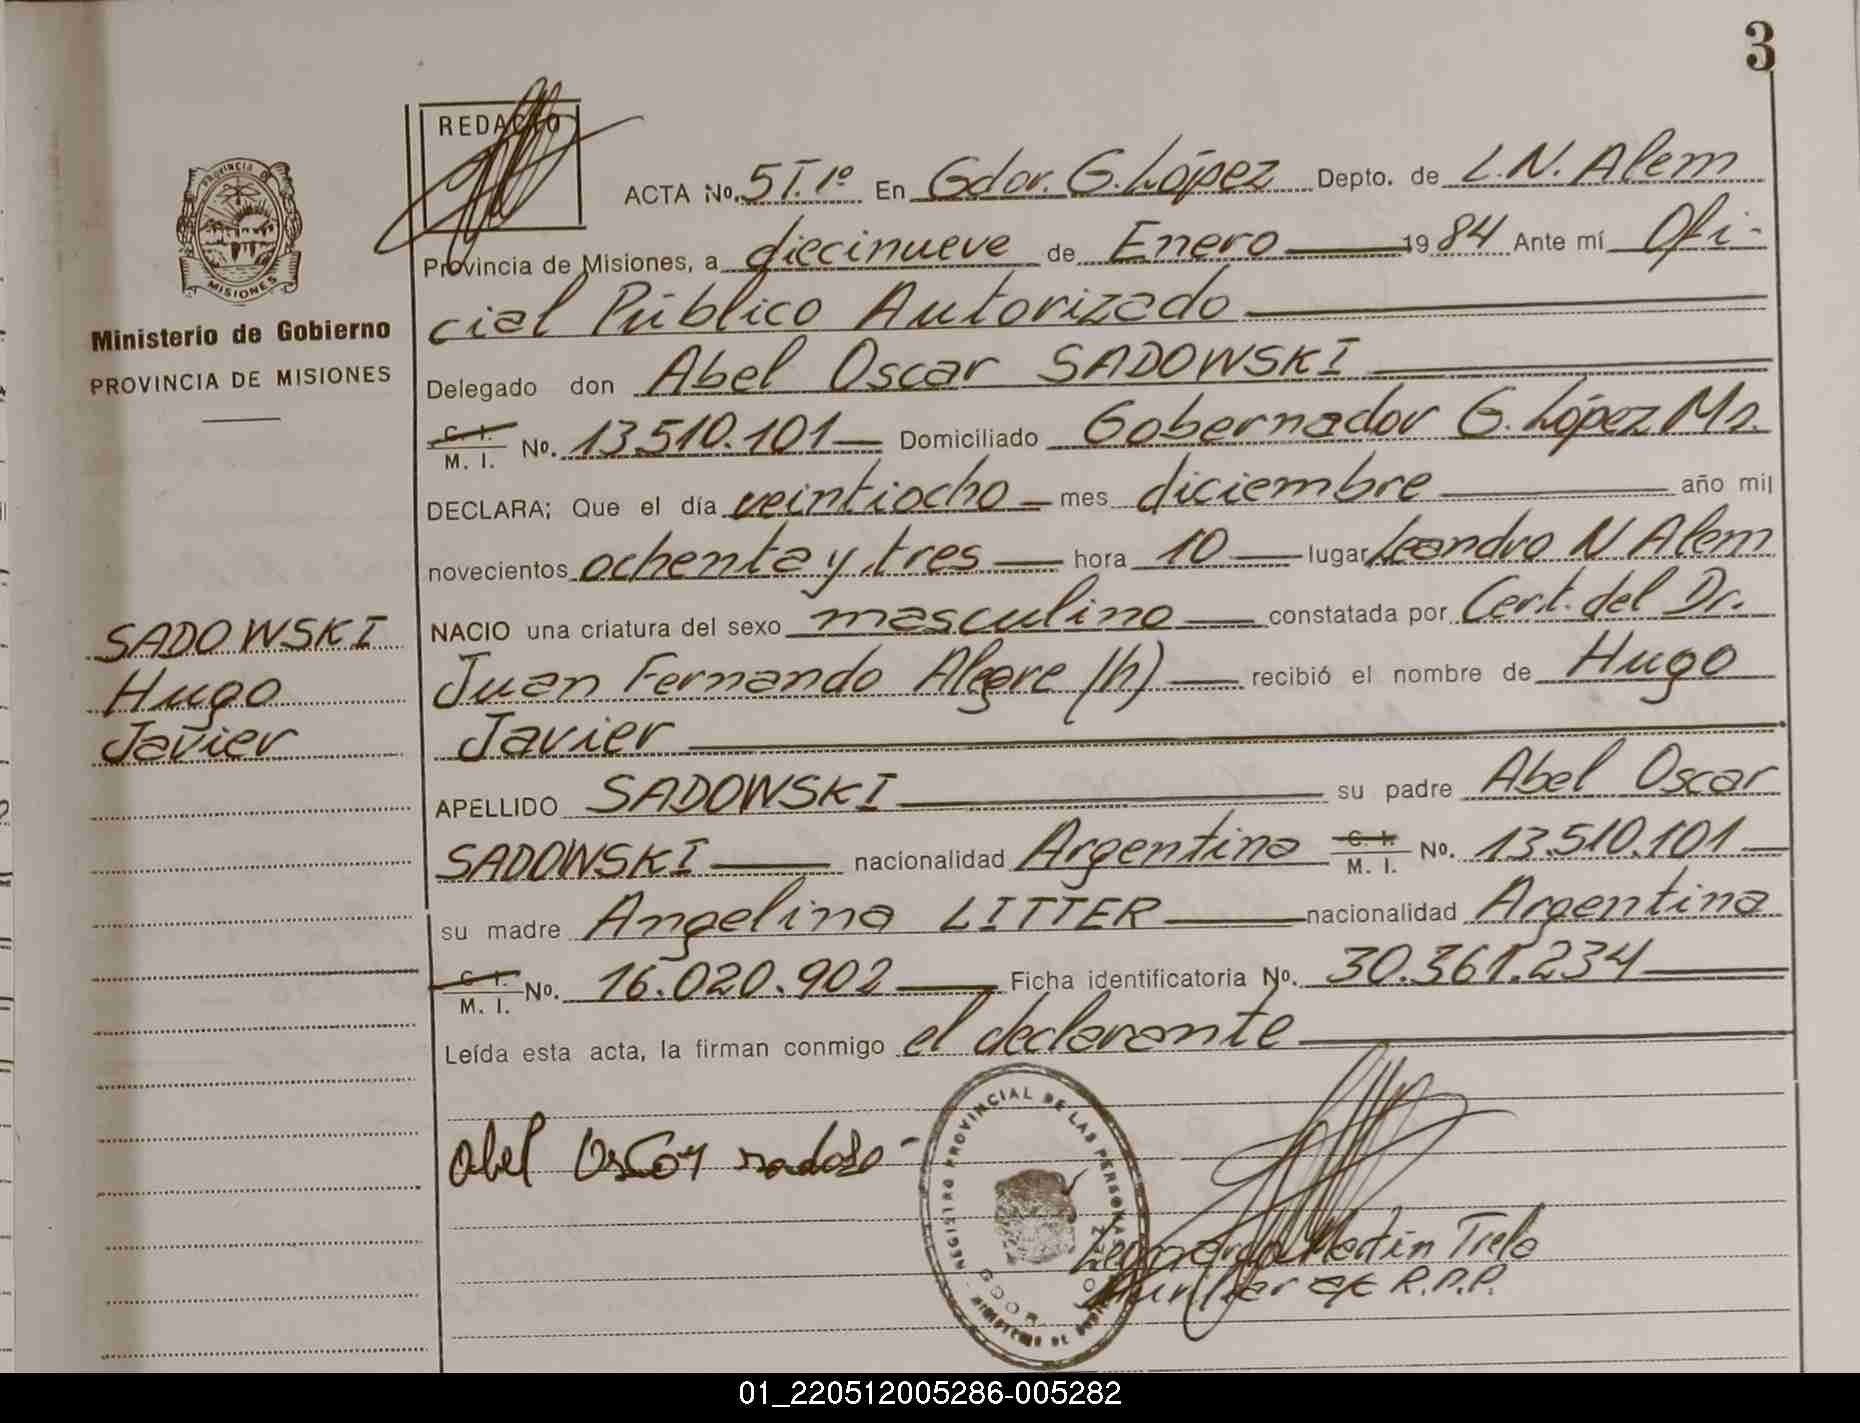 3
REDACTO
PROVINCIA D
MISIONES
Ministerio de Gobierno
PROVINCIA DE MISIONES
SADOWSKI
Hugo
Javier
ACTA No. 5 T. 1º En Gdor. G. López Depto. de L.N. Alem
Provincia de Misiones, a diecinueve de Enero 1984 Ante mí Ofi-
cial Público Autorizado
Delegado don Abel Oscar SADOWSKI
C. I.
M. I. No. 13.510.101 Domiciliado Gobernador G. López Ms.
DECLARA; Que el día veintiocho mes diciembre año mil
novecientos ochenta y tres hora 10 lugar Leandro N Alem
NACIO una criatura del sexo masculino constatada por Cert. del Dr.
Juan Fernando Alegre (h) recibió el nombre de Hugo
Javier
APELLIDO SADOWSKI su padre Abel Oscar
SADOWSKI nacionalidad Argentina C. I. M. I. No. 13.510.101
su madre Angelina LITTER nacionalidad Argentina
C. I.
M. I. No. 16.020.902 Ficha identificatoria No. 30.361.234
Leída esta acta, la firman conmigo el declarante
REGISTRO PROVINCIAL DE LAS PERSONAS
Abel Oscar
Martin Trela
R.P.P.
01_220512005286-005282